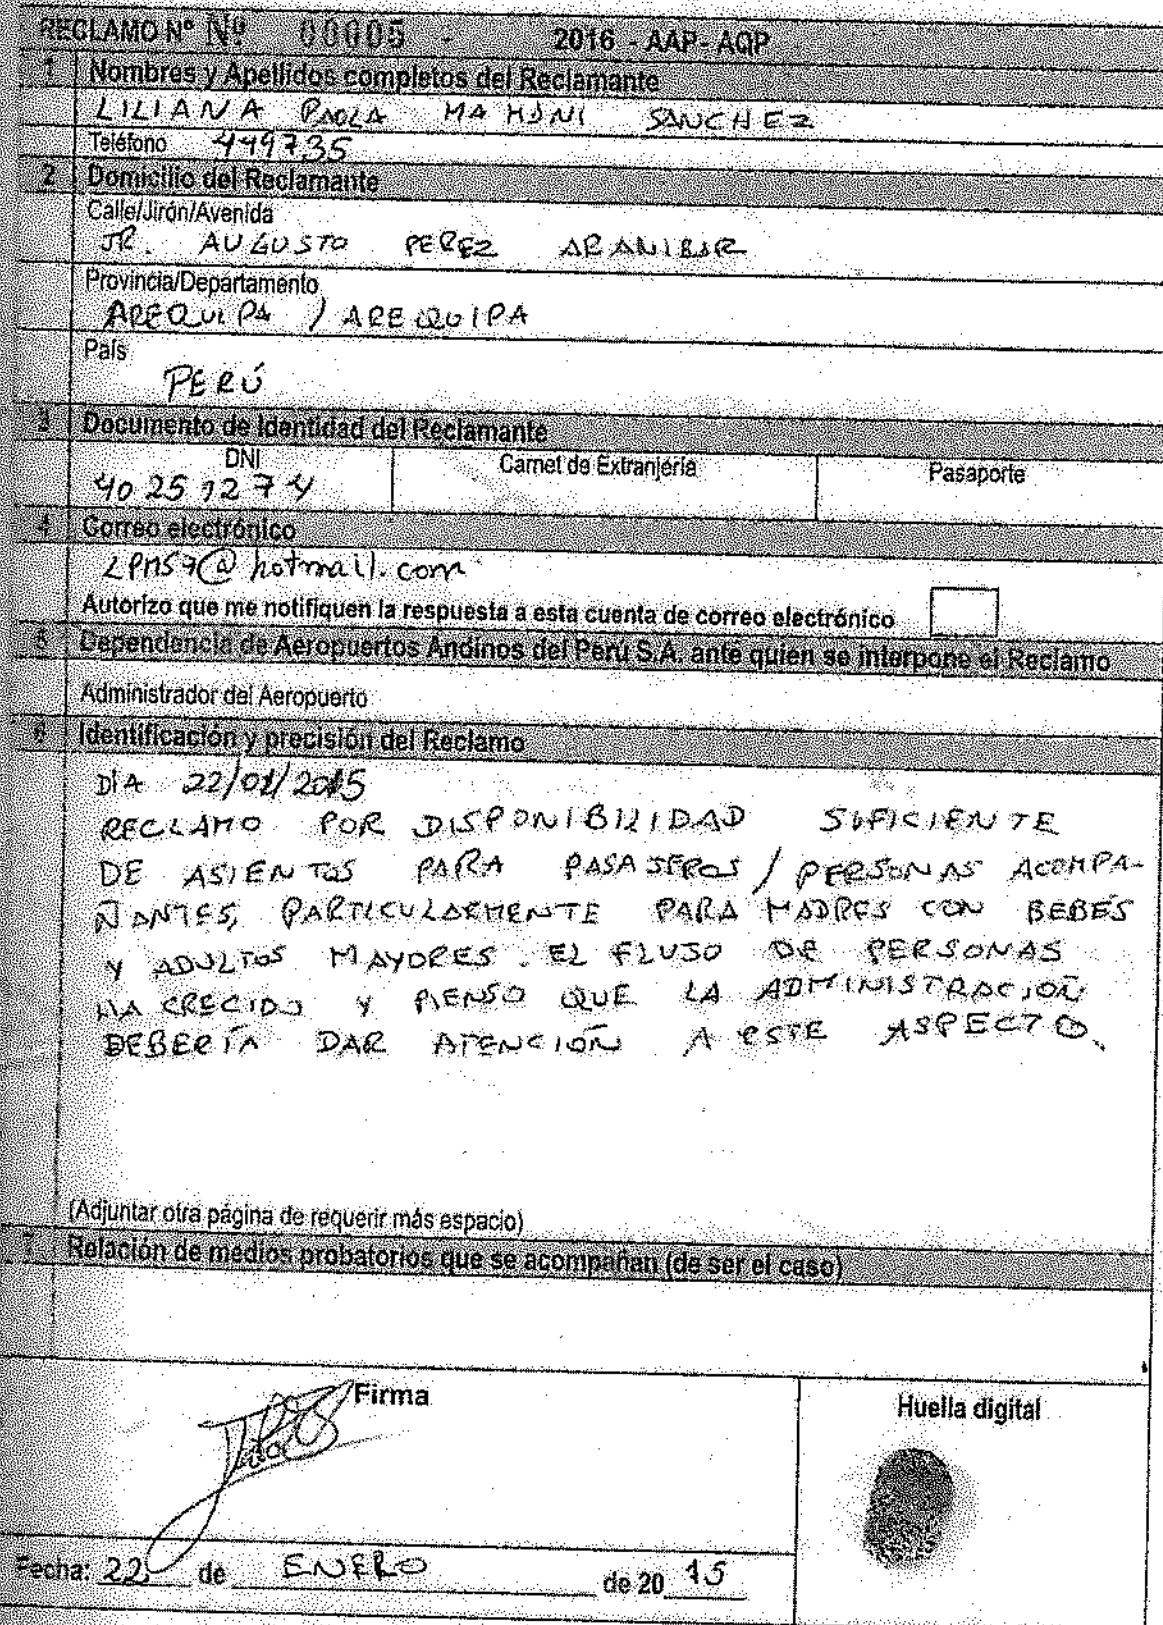 RECLAMO Nº Nº 00005 - 2016 - AAP- AQP
1 Nombres y Apellidos completos del Reclamante
LILIANA PAOLA MAMANI SANCHEZ
Teléfono 449735
2 Domicilio del Reclamante
Calle/Jirón/Avenida
JR. AUGUSTO PEREZ ARANIBAR
Provincia/Departamento
AREQUIPA / AREQUIPA
País
PERÚ
3 Documento de Identidad del Reclamante
DNI Carnet de Extranjería Pasaporte
40251274
4 Correo electrónico
LPMS7@hotmail.com
Autorizo que me notifiquen la respuesta a esta cuenta de correo electrónico
5 Dependencia de Aeropuertos Andinos del Perú S.A. ante quien se interpone el Reclamo
Administrador del Aeropuerto
6 Identificación y precisión del Reclamo
DÍA 22/01/2015
RECLAMO POR DISPONIBILIDAD SUFICIENTE
DE ASIENTOS PARA PASAJEROS / PERSONAS ACOMPA-
ÑANTES, PARTICULARMENTE PARA MADRES CON BEBES
Y ADULTOS MAYORES. EL FLUJO DE PERSONAS
HA CRECIDO Y PIENSO QUE LA ADMINISTRACIÓN
DEBERÍA DAR ATENCIÓN A ESTE ASPECTO.
(Adjuntar otra página de requerir más espacio)
7 Relación de medios probatorios que se acompañan (de ser el caso)
Firma
Huella digital
Fecha: 22 de ENERO de 20 15